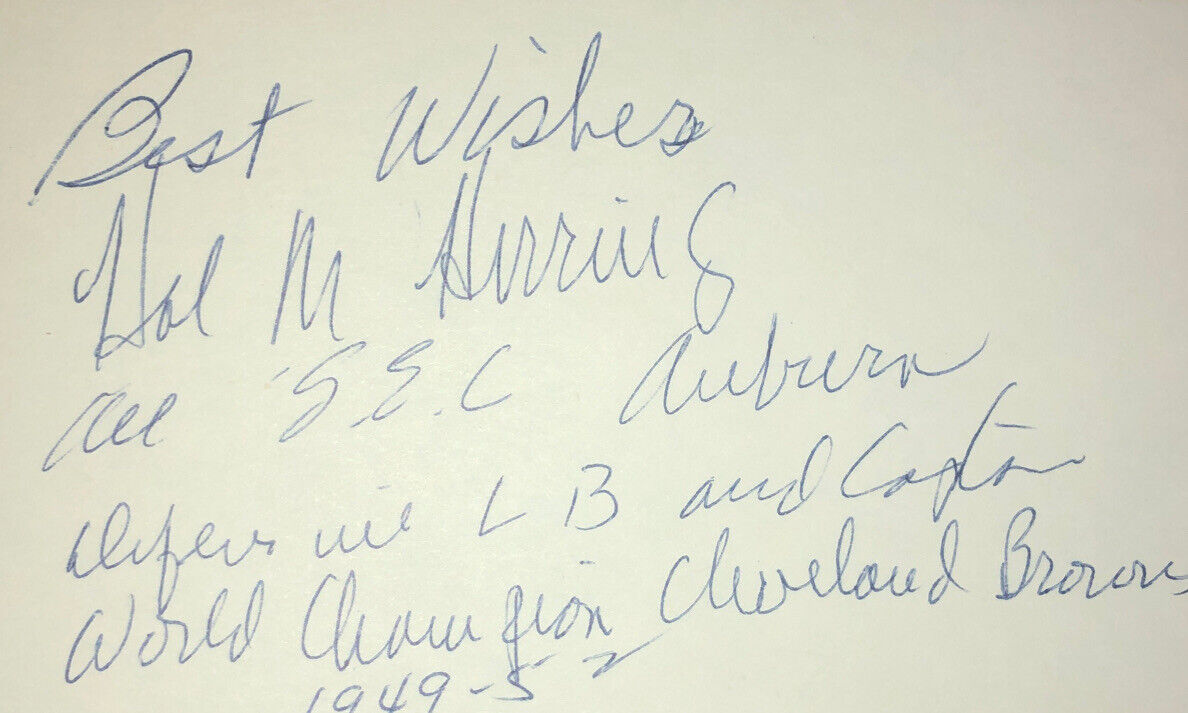 Best Wishes
Hal M Herring
All S.E.C Auburn
Defensive L B and Captain
World Champion Cleveland Browns
1949-52